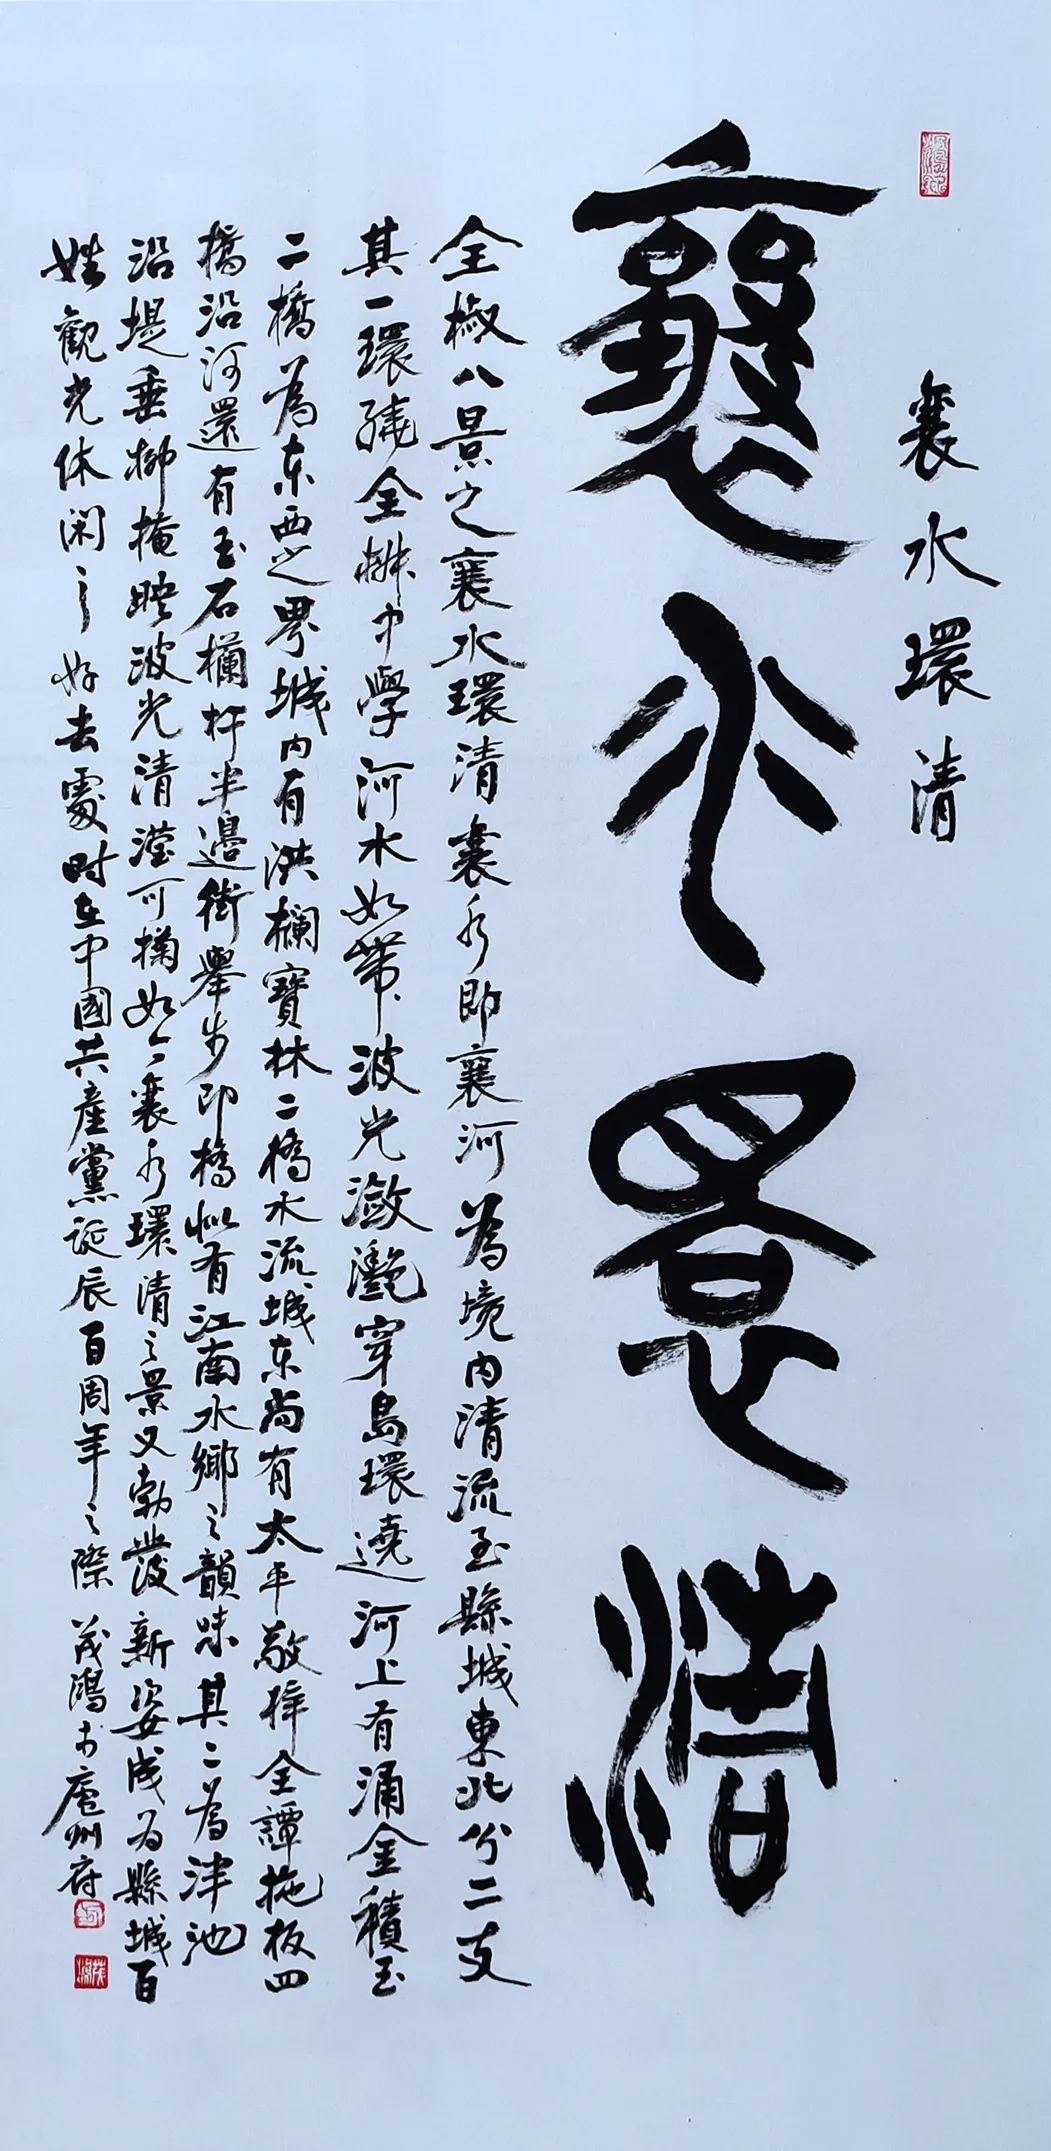 襄水環清
襄水睘清
全椒八景之襄水環清襄水即襄河為境内清流至縣城東北分二支
其一環繞全椒中學河水如带波光瀲灧穿島環遶河上有涌金積玉
二橋為东西之界城内有洪欄寶林二橋水流城东尚有太平敬梓全譚拖板四
橋沿河還有玉石欄杆半邉街舉步即橋似有江南水鄉之韻味其二為津池
沿堤垂柳掩映波光清滢可掬如今襄水環清之景又勃發新姿成为縣城百
姓觀光休闲之好去處时在中國共產黨诞辰百周年之際茂鴻书廬州府